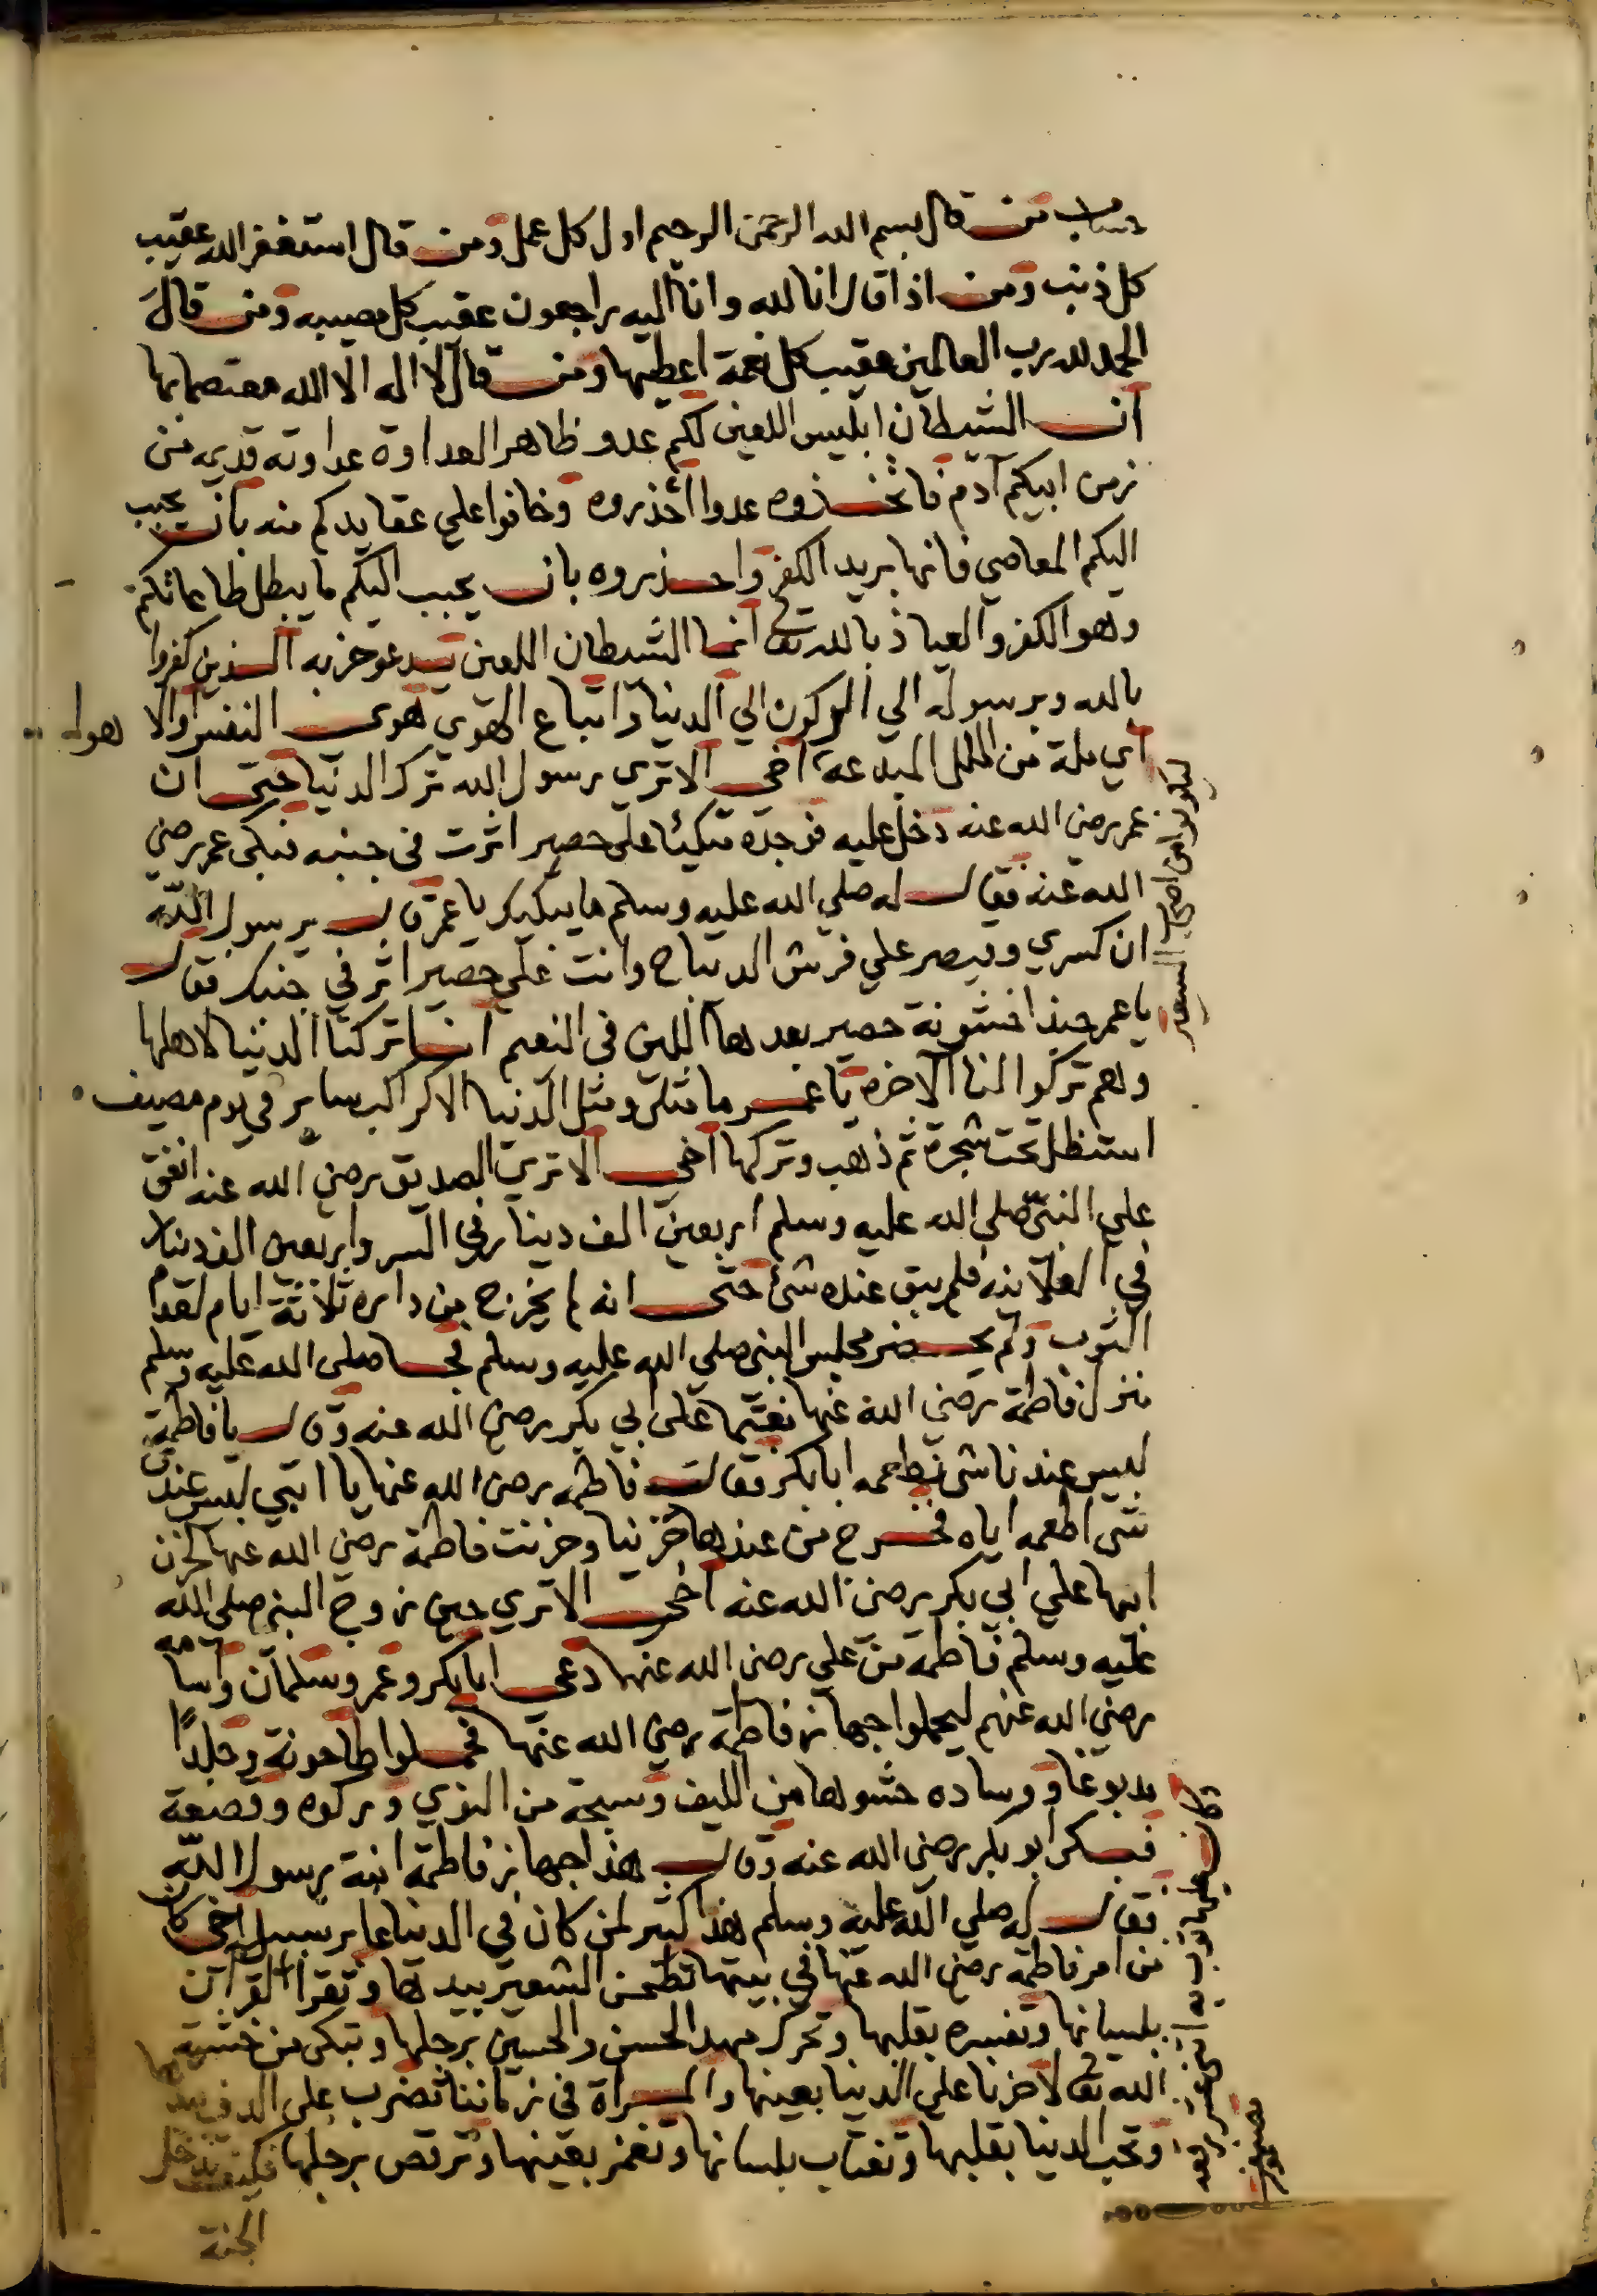 وساب من قال بسم الله الرحمن الرحيم اول كل عمل ومن قال استغفر الله عقيب
كل ذنب ومن اذا قال انا لله وانا اليه راجعون عقيب كل مصيبه ومن قال
الحمد لله رب العالمين عقيب كل نعمة اعطيها ومن قال لا اله الا الله معتصما بها
ان الشيطان ابليس اللعين لكم عدو ظاهر العداوة عداوته قديمه من
زمن ابيكم آدم فاتخذوه عدوا احذروه وخافوا على عقايدكم منه بان يحبب
اليكم المعاصي فانها بريد الكفر واحذروه بان يحبب اليكم ما يبطل طاعاتكم
وهو الكفر والعياذ بالله تعالى انما الشيطان اللعين يدعو حزبه الذين كفروا
بالله وبرسوله الي الركون الي الدنيا واتباع الهوي هوى النفس اولا
اي ملة من الملل المبدعة اخى الا تري رسول الله ترك الدنيا حتى ان
عمر رضى الله عنه دخل عليه فوجده متكيئا على حصير اثرت في جنبه فبكى عمر رضي
الله عنه فقال له صلي الله عليه وسلم ما يبكيك يا عمر قال يرسول الله
ان كسري وقيصر علي فرش الديباج وانت على حصير اثر في جنبك فقال
يا عمر حبذا خشونة حصير بعدها اللين في النعيم انا تركنا الدنيا لاهلها
وهم تركوا لنا الآخره يا عمر ما مثلي ومثل الدنيا الا كراكب ساير في يوم مصيف
استظل تحت شجرة ثم ذهب وتركها اخى الا تري الصديق رضي الله عنه انفق
علي النبي صلى الله عليه وسلم اربعين الف دينار في السر واربعين الف دينار
في العلانيه فلم يبق عنده شئ حتى انه لم يخرج من داره ثلاثة ايام لعدم
الثوب ولم يحضر مجلس النبي صلي الله عليه وسلم فجا صلى الله عليه وسلم
منزل فاطمة رضي الله عنها مغتما على ابي بكر رضي الله عنه وقال يا فاطمة
ليس عندنا شى نطعمه ابا بكر فقالت فاطمه رضى الله عنها يا ابتي ليس عندي
شى اطعمه اياه فخرج من عندها حزينا وحزنت فاطمة رضي الله عنها لحزن
ابيها علي ابي بكر رضى الله عنه اخى الا تري حين زوج النبي صلى الله
عليه وسلم فاطمة من علي رضى الله عنها دعى ابا بكر وعمر وسلمان واسامه
رضي الله عنهم ليحملوا جهاز فاطمة رضي الله عنها فحملوا طاحونة وجلدًا
مدبوغا ووساده حشوها من الليف وسبحة من النوي وركوه وقصعة
فبكى ابو بكر رضى الله عنه وقال هذا جهاز فاطمة ابنة رسول الله
فقال له صلي الله عليه وسلم هذا كثير لمن كان في الدنيا عابر سبيل اخى كان
من امر فاطمة رضى الله عنها في بيتها تطحن الشعير بيدها وتقرأ القرآن
بلسانها وتفسره بقلبها وتحرك مهد الحسن والحسين برجلها وتبكى من خشية
الله تعالى لا حزنا على الدنيا بعينها والمراة في زماننا تضرب على الدف بيدها
وتحب الدنيا بقلبها وتغتاب بلسانها وتغمز بعينها وترقص برجلها فكيف تدخل
الجنة
ليكونوا من اصحاب السعير